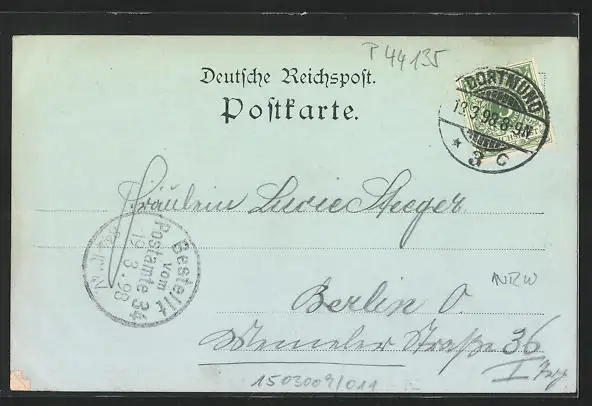 P 44135
Deutsche Reichspost.
Postkarte.
DORTMUND
19.3.98.8-9N
* 3 C
Fräulein Lucie Steeger
Bestellt
vom
Postamte 34
19.3.98
N
NRW
Berlin O.
Straße 36
I
1503009/011